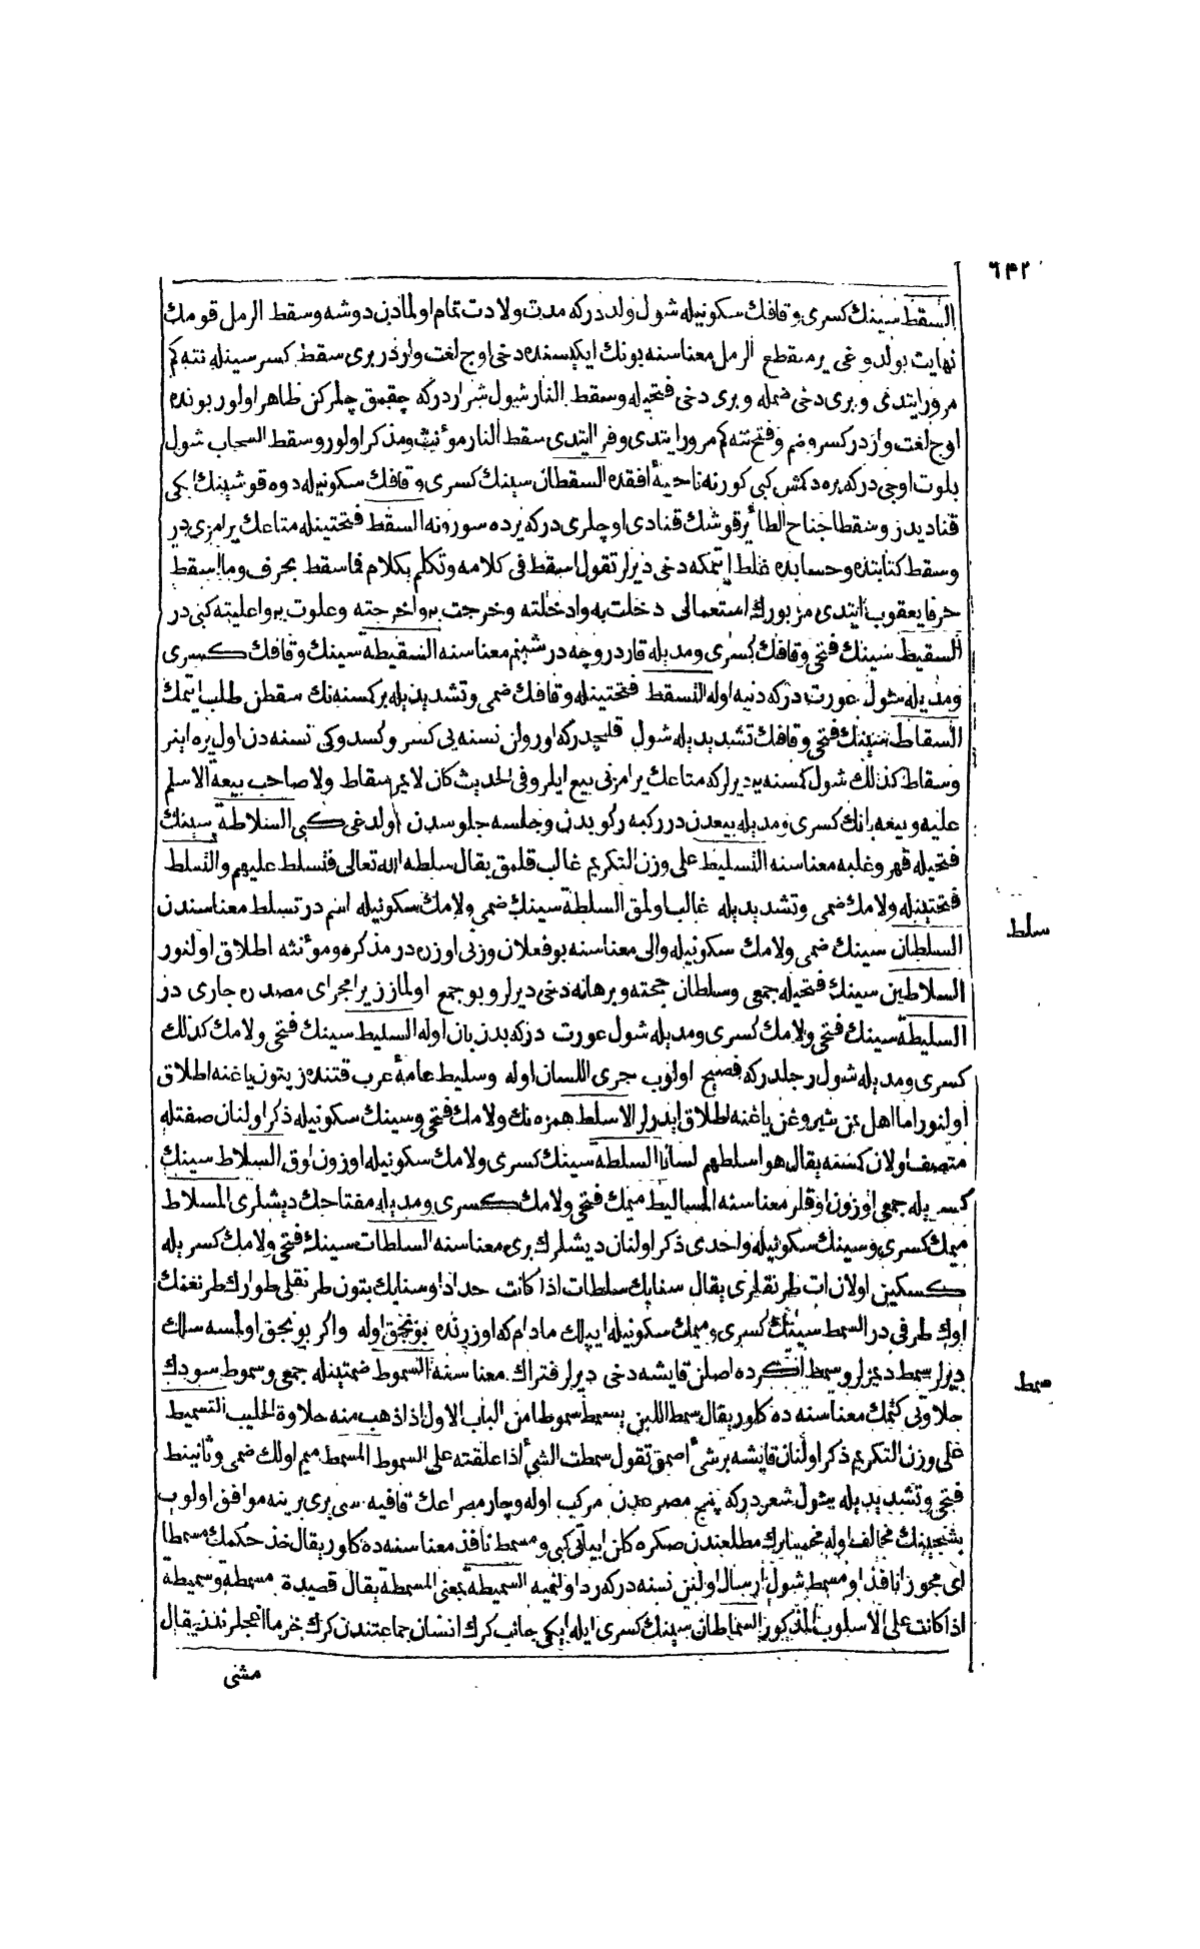 ٦٤٢
السقط سينك كسرى و قافك سكونيله شول ولددركه مدت ولادت تمام اولمادن دوشه وسقط الرمل قومك
نهايت بولدوغى ير منقطع الرمل معناسنه بونك ايكيسنده دخى اوج لغت واردر برى سقط كسر سينله نته كم
مرور ايتدى وبرى دخى ضمله وبرى دخى فتحيله وسقط النار شول شراردركه چقمق چلركن ظاهر اولور بونده
اوج لغت واردر كسر وضم وفتح نته كم مرور ايتدى وفرا ايتدى سقط النار مؤنث ومذكر اولور وسقط السحاب شول
بلوت اوجى دركه يره دكمش كبى كورنه ناحية افقده السقطان سينك كسرى وقافك سكونيله دوه قوشينك ايكى
قناديدر وسقطا جناح الطائر قوشك قنادى اوچلرى دركه يرده سورونه السقط فتحتينله متاعك يرامزى در
وسقط كتابتده وحسابده غلط ايتمكه دخى ديرلر تقول اسقط فى كلامه وتكلم بكلام فما سقط بحرف وما اسقط
حرفا يعقوب ايتدى مزبورك استعمالى دخلت به وادخلته وخرجت به واخرجته وعلوت به واعليته كبى در
السقيط سينك فتحى وقافك كسرى ومديله قاردر وچه در شبنم معناسنه السقيطة سينك وقافك كسرى
ومديله شول عورت دركه دنيه اوله التسقط فتحتينله وقافك ضمى وتشديديله بر كمسنه نك سقطن طلب ايتمك
السقاط سينك فتحى وقافك تشديديله شول قليچدركه اورولن نسنه يى كسر وكسدوكى نسنه دن اول يره اينر
وسقاط كذلك شول كمسنه يه ديرلركه متاعك يرامزنى بيع ايلر وفى الحديث كان لا يمر بسقاط ولا صاحب بيعة الا سلم
عليه وبيعه بانك كسرى ومديله بيعدن در ركبه ركوبدن وجلسه جلوسدن اولدغى كبى السلاطة سينك
فتحيله قهر وغلبه معناسنه التسليط على وزن التكريم غالب قلمق يقال سلطه الله تعالى فتسلط عليهم والتسلط
فتحتينله ولامك ضمى وتشديديله غالب اولمق السلطة سينك ضمى ولامك سكونيله اسم در تسلط معناسندن
سلط
السلطان سينك ضمى ولامك سكونيله والى معناسنه بو فعلان وزنى اوزره در مذكره ومؤنثه اطلاق اولنور
السلاطين سينك فتحيله جمعى وسلطان حجته وبرهانه دخى ديرلر وبو جمع اولماز زيرا مجراى مصدره جارى در
السليطة سينك فتحى ولامك كسرى ومديله شول عورت دركه بدزبان اوله السليط سينك فتحى ولامك كذلك
كسرى ومديله شول رجلدركه فصيح اولوب جرى اللسان اوله وسليط عامۀ عرب قتنده زيتون ياغنه اطلاق
اولنور اما اهل يمن شيروغن ياغنه اطلاق ايدرلر الاسلط همزه نك ولامك فتحى وسينك سكونيله ذكر اولنان صفتله
متصف اولان كمسنه يقال هو اسلطهم لسانا السلطة سينك كسرى ولامك سكونيله اوزون اوق السلاط سينك
كسريله جمعى اوزون اوقلر معناسنه المساليط ميمك فتحى ولامك كسرى ومديله مفتاحك ديشلرى المسلاط
ميمك كسرى وسينك سكونيله واحدى ذكر اولنان ديشلرك برى معناسنه السلطات سينك فتحى ولامك كسريله
كسكين اولان ات طرنقلرى يقال سنابك سلطات اذا كانت حدادا وسنابك بتون طرنقلى طوارك طرنغنك
اوك طرفى در السمط سينك كسرى وميمك سكونيله ايپلك مادام كه اوزرنده بونجق اوله واكر بونجق اولمسه سلك
ديرلر سمط ديمزلر وسمط اكرده اصلن قايشه دخى ديرلر فتراك معناسنه السموط ضمتينله جمعى وسموط سودك
سمط
حلاوتى كتمك معناسنه ده كلور يقال سمط اللبن يسمط سموطا من الباب الاول اذا ذهب منه حلاوة الحليب التسميط
على وزن التكريم ذكر اولنان قايشه بر شئ اصمق تقول سمطت الشئ اذا علقته على السموط المسمط ميم اولك ضمى وثانينك
فتحى وتشديديله شول شعردركه پنج مصرعدن مركب اوله وچار مصراعك قافيه سى برى برينه موافق اولوب
پنجمينك مخالف اوله مخمساتك مطلعندن صكره كلن ابياتى كبى ومسمط نافذ معناسنه ده كلور يقال خذ حكمك مسمطا
اى مجوزا نافذا ومسمط شول ارسال اولنن نسنه دركه رد اولنميه السميطة بمعنى المسمطة يقال قصيدة مسمطة وسميطة
اذا كانت على الاسلوب المذكور السماطان سينك كسرى ايله ايكى جانب كرك انسان جماعتندن كرك خرما اغجلرندن يقال
مشى